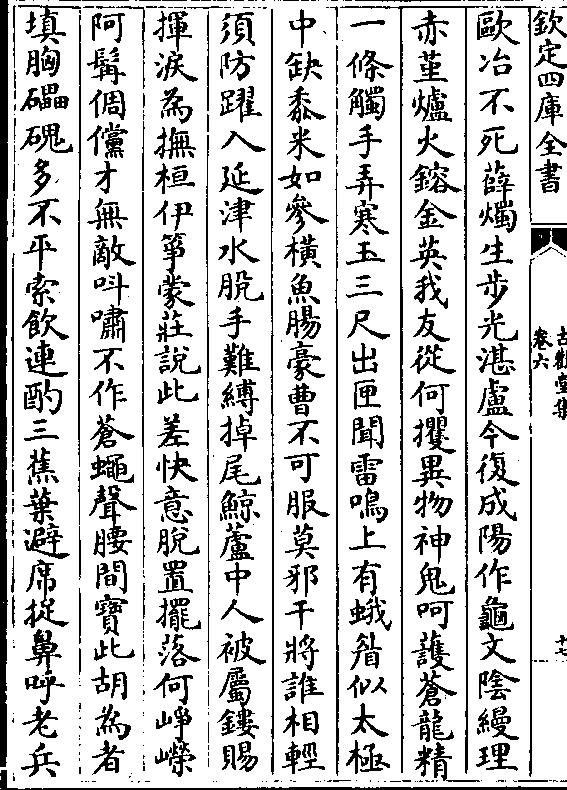 欽定四庫全書
古歡堂集
卷六
十七
歐冶不死薛燭生步光湛盧今復成陽作龜文陰縵理
赤堇爐火鎔金英我友從何攫異物神鬼呵護蒼龍精
一條觸手弄寒玉三尺出匣聞雷鳴上有蛾眉似太極
中缺黍米如參橫魚腸豪曹不可服莫邪干將誰相輕
須防躍入延津水脫手難縛掉尾鯨蘆中人被屬鏤賜
揮淚為撫桓伊箏蒙莊說此差快意脫置擺落何崢嶸
阿髯倜儻才無敵呌嘯不作蒼蠅聲腰間寶此胡為者
填胸礧磈多不平索飲連酌三蕉葉避席捉鼻呼老兵